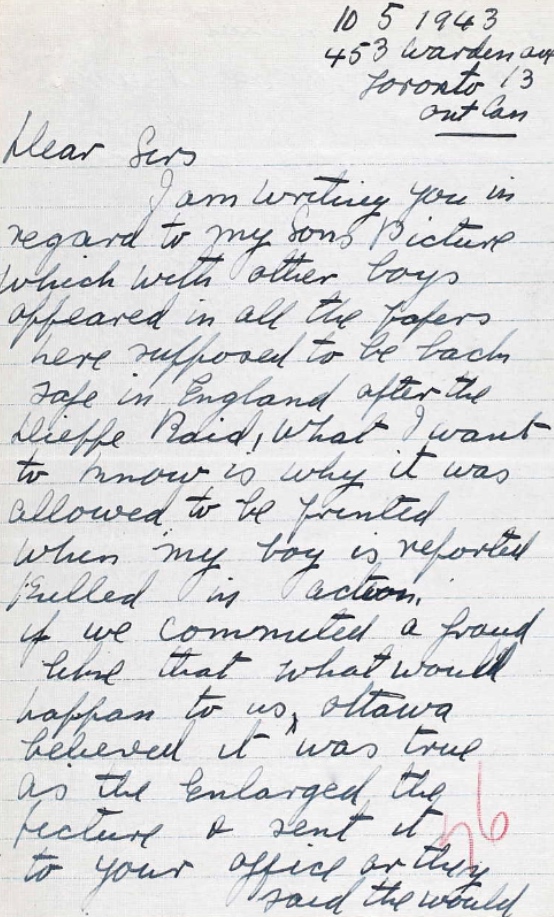 10 5 1943
453 Warden ave
Toronto 13
Ont Can
Dear Sirs
I am writing you in
regard to my Sons Picture
which with other boys
appeared in all the papers
here supposed to be back
safe in England after the
Dieppe Raid, What I want
to know is why it was
allowed to be printed
when my boy is reported
Killed in action.
if we commuted a fraud
like that what would
happan to us, ottawa
believed it was true
as the Enlarged the
Picture & sent it
to your office or they
said the would
76